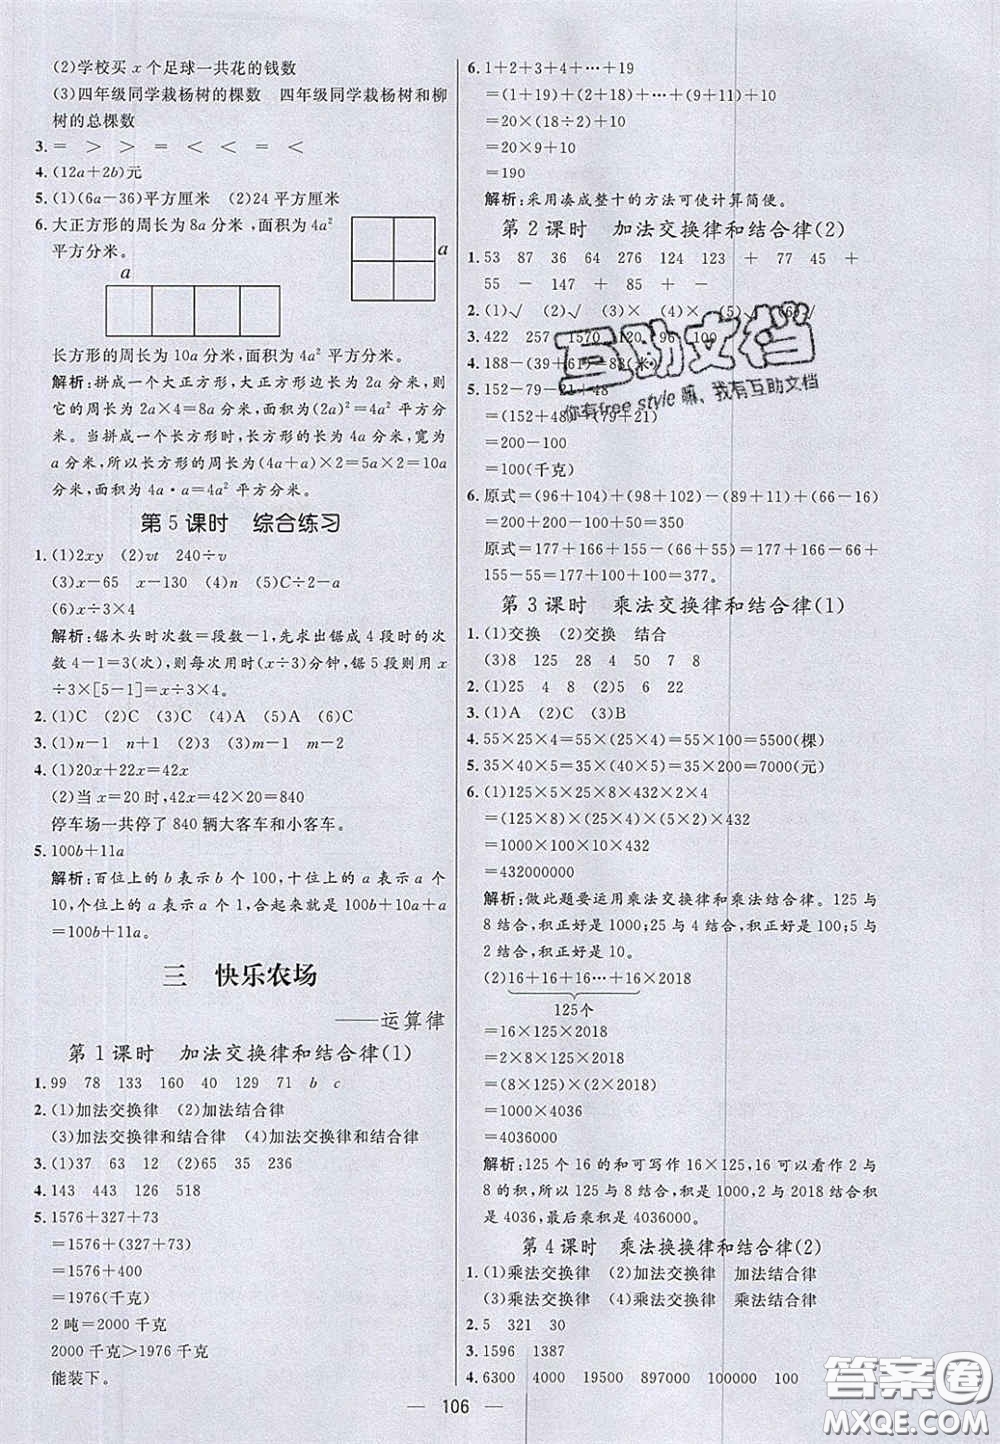 (2)学校买 x 个足球一共花的钱数
(3)四年级同学栽杨树的棵数 四年级同学栽杨树和柳
树的总棵数
3. = > > = < < = <
4. (12a+2b)元
5. (1)(6a-36)平方厘米 (2)24 平方厘米
6. 大正方形的周长为 8a 分米,面积为 4a²
平方分米。
a
a
长方形的周长为 10a 分米,面积为 4a² 平方分米。
解析:拼成一个大正方形,大正方形边长为 2a 分米,则
它的周长为 2a×4=8a 分米,面积为(2a)²=4a² 平方分
米。当拼成一个长方形时,长方形的长为 4a 分米,宽为
a 分米,所以长方形的周长为(4a+a)×2=5a×2=10a
分米,面积为 4a·a=4a² 平方分米。
第 5 课时 综合练习
1. (1)2xy (2)vt 240÷v
(3)x-65 x-130 (4)n (5)C÷2-a
(6)x÷3×4
解析:锯木头时次数=段数-1,先求出锯成 4 段时的次
数 4-1=3(次),则每次用时(x÷3)分钟,锯 5 段则用 x
÷3×[5-1]=x÷3×4。
2. (1)C (2)C (3)C (4)A (5)A (6)C
3. (1)n-1 n+1 (2)3 (3)m-1 m-2
4. (1)20x+22x=42x
(2)当 x=20 时,42x=42×20=840
停车场一共停了 840 辆大客车和小客车。
5. 100b+11a
解析:百位上的 b 表示 b 个 100,十位上的 a 表示 a 个
10,个位上的 a 表示 a 个 1,合起来就是 100b+10a+a
=100b+11a。
三 快乐农场
——运算律
第 1 课时 加法交换律和结合律(1)
1. 99 78 133 160 40 129 71 b c
2. (1)加法交换律 (2)加法结合律
(3)加法交换律和结合律 (4)加法交换律和结合律
3. (1)37 63 12 (2)65 35 236
4. 143 443 126 518
5. 1576+327+73
=1576+(327+73)
=1576+400
=1976(千克)
2 吨=2000 千克
2000 千克>1976 千克
能装下。
6. 1+2+3+4+…+19
=(1+19)+(2+18)+…+(9+11)+10
=20×(18÷2)+10
=20×9+10
=190
解析:采用凑成整十的方法可使计算简便。
第 2 课时 加法交换律和结合律(2)
1. 53 87 36 64 276 124 123 + 77 45 +
55 - 147 + 85 + -
2. (1)√ (2)√ (3)× (4)×
3. 422 257 1570 1120 96 100
4. 188-(39+61)=88(米)
5. 152-79-21+48
=(152+48)-(79+21)
=200-100
=100(千克)
6. 原式=(96+104)+(98+102)-(89+11)+(66-16)
=200+200-100+50=350
原式=177+166+155+100-166+100-155=177+
155-155+166-166+100+100=377。
第 3 课时 乘法交换律和结合律(1)
1. (1)交换 (2)交换 结合
(3)8 125 28 4 50 7 8
2. (1)25 4 8 (2)5 6 22
3. (1)A (2)C (3)B
4. 55×25×4=55×(25×4)=55×100=5500(棵)
5. 35×40×5=35×(40×5)=35×200=7000(元)
6. (1)125×25×5×8×432×2×4
=(125×8)×(25×4)×(5×2)×432
=1000×100×10×432
=432000000
解析:做此题要运用乘法交换律和乘法结合律。125 与
8 结合,积正好是 1000;25 与 4 结合,积正好是 100;5 与
2 结合,积正好是 10。
(2)16+16+16…+16×2018
125个
=16×125×2018
=2×8×125×2018
=(8×125)×(2×2018)
=1000×4036
=4036000
解析:125 个 16 的和可写作 16×125,16 可以看作 2 与
8 的积,所以 125 与 8 结合,积是 1000,2 与 2018 结合
积是 4036,最后乘积是 4036000。
第 4 课时 乘法换换律和结合律(2)
1. (1)乘法交换律 (2)加法交换律 加法结合律
(3)乘法交换律 (4)乘法交换律 乘法结合律
2. 5 321 30
3. 1596 1387
4. 6300 4000 19500 897000 100000 100
106
互助文档
你有free style 嘛、我有互助文档
答案圈
MXQE.COM